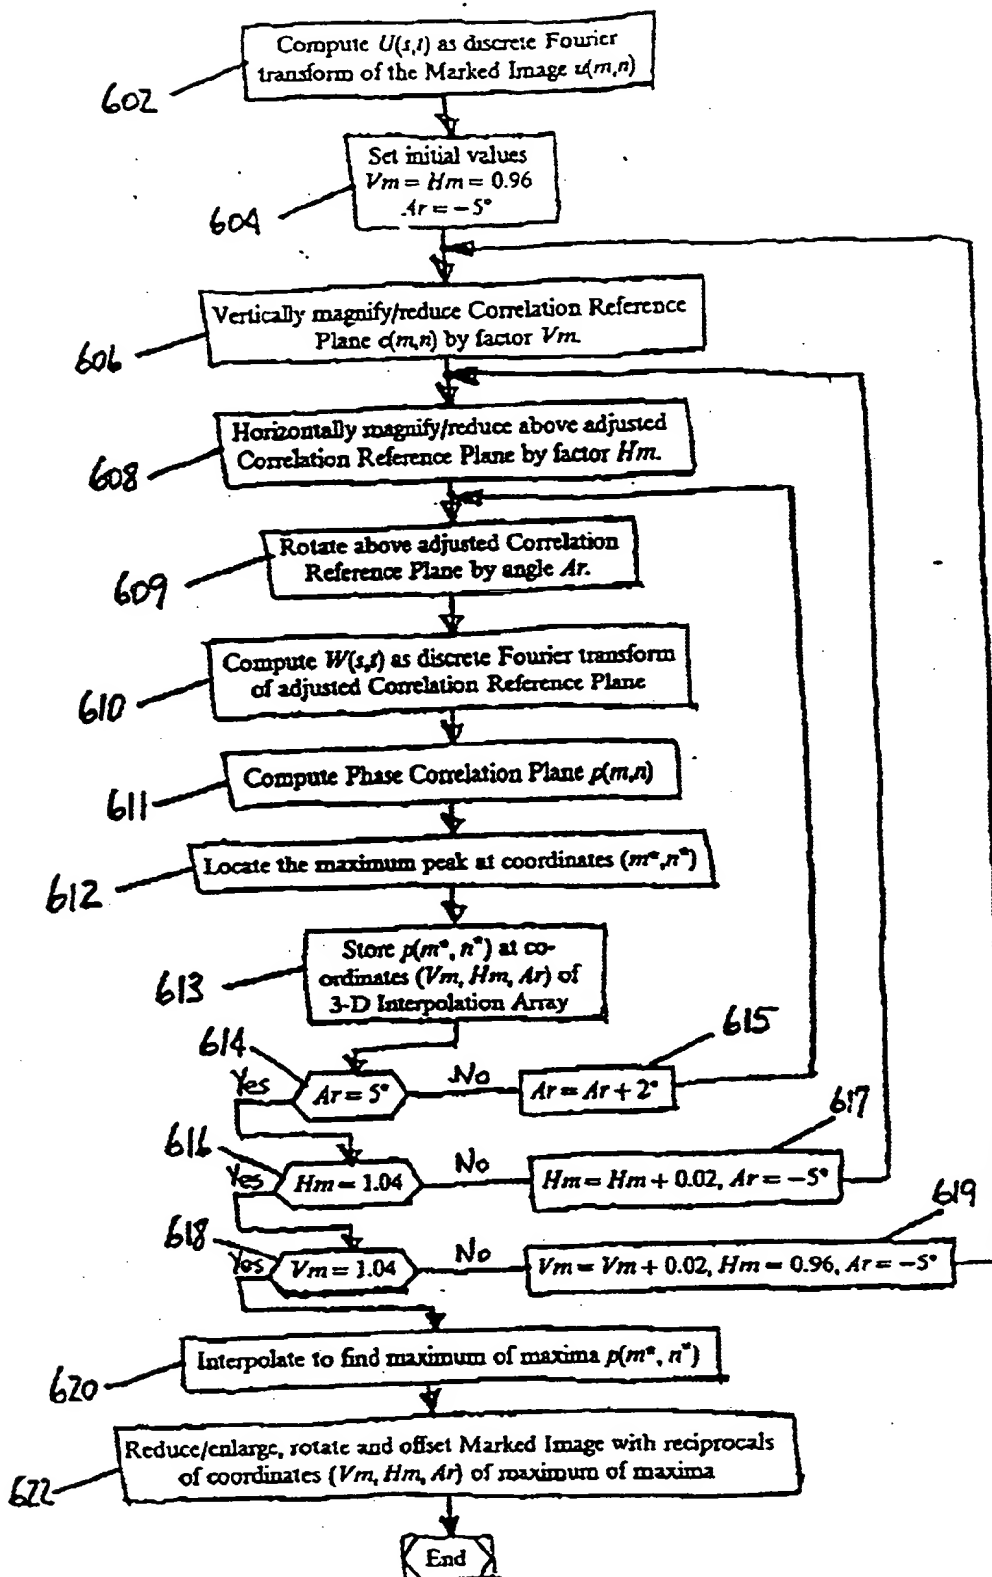 Compute U(s,t) as discrete Fourier
transform of the Marked Image u(m,n)
602
Set initial values
Vm = Hm = 0.96
Ar = −5°
604
Vertically magnify/reduce Correlation Reference
Plane c(m,n) by factor Vm.
606
Horizontally magnify/reduce above adjusted
Correlation Reference Plane by factor Hm.
608
Rotate above adjusted Correlation
Reference Plane by angle Ar.
609
Compute W(s,t) as discrete Fourier transform
of adjusted Correlation Reference Plane
610
Compute Phase Correlation Plane p(m,n)
611
Locate the maximum peak at coordinates (m*,n*)
612
Store p(m*, n*) at co-
ordinates (Vm, Hm, Ar) of
3-D Interpolation Array
613
614
615
Yes
Ar = 5°
No
Ar = Ar + 2°
617
616
Yes
Hm = 1.04
No
Hm = Hm + 0.02, Ar = −5°
619
618
Yes
Vm = 1.04
No
Vm = Vm + 0.02, Hm = 0.96, Ar = −5°
Interpolate to find maximum of maxima p(m*, n*)
620
Reduce/enlarge, rotate and offset Marked Image with reciprocals
of coordinates (Vm, Hm, Ar) of maximum of maxima
622
End